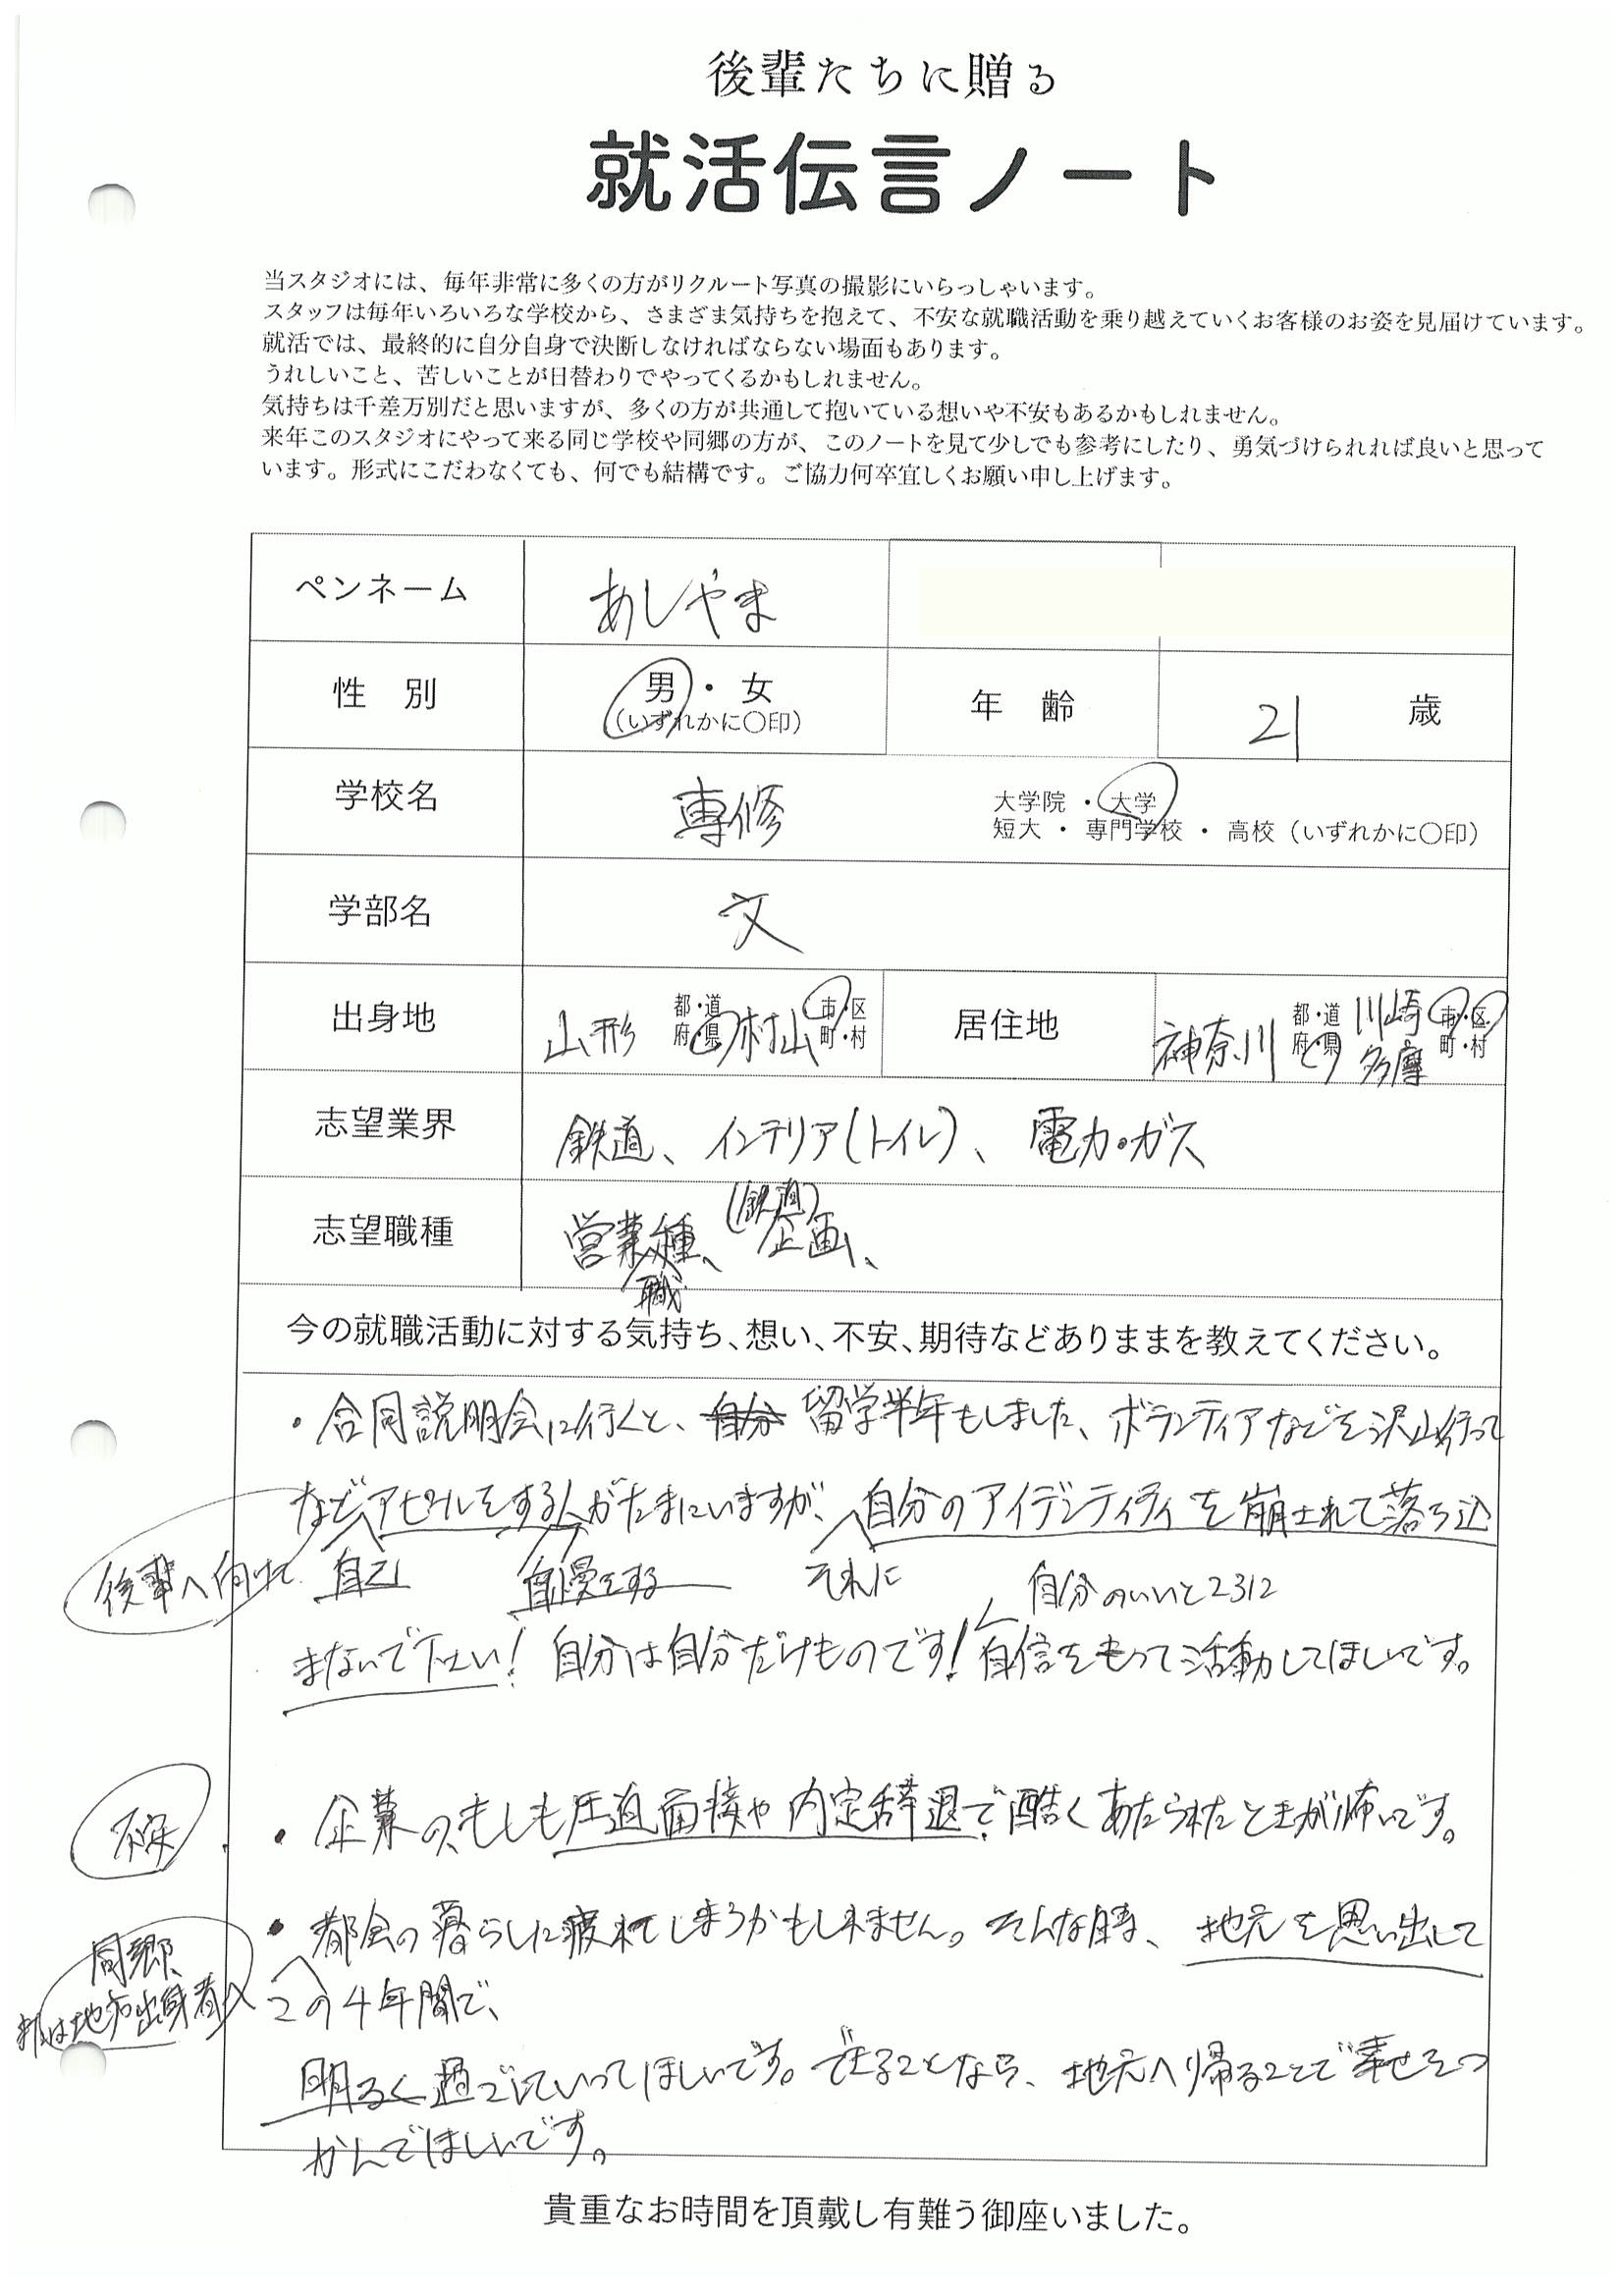 後輩たちに贈る
就活伝言ノート
当スタジオには、毎年非常に多くの方がリクルート写真の撮影にいらっしゃいます。
スタッフは毎年いろいろな学校から、さまざま気持ちを抱えて、不安な就職活動を乗り越えていくお客様のお姿を見届けています。
就活では、最終的に自分自身で決断しなければならない場面もあります。
うれしいこと、苦しいことが日替わりでやってくるかもしれません。
気持ちは千差万別だと思いますが、多くの方が共通して抱いている想いや不安もあるかもしれません。
来年このスタジオにやって来る同じ学校や同郷の方が、このノートを見て少しでも参考にしたり、勇気づけられれば良いと思って
います。形式にこだわなくても、何でも結構です。ご協力何卒宜しくお願い申し上げます。
ペンネーム あしやま
性 別 男・女 (いずれかに〇印) 年 齢 21 歳
学校名 専修 大学院・大学
短大・専門学校・高校(いずれかに〇印)
学部名 文
出身地 山形 都・道府・県 村山 市・区町・村 居住地 神奈川 都・道府・県 川崎多摩 市・区町・村
志望業界 鉄道、インテリア(トイレ)、電力・ガス
(鉄道)
志望職種 営業種、企画、
職
今の就職活動に対する気持ち、想い、不安、期待などありままを教えてください。
・合同説明会に行くと、自分 留学半年もしました、ボランティアなどを沢山行って
などアピールをする人がたまにいますが、自分のアイデンティティを崩されて落ち込
後輩へ向けて 自己 自慢をする それに 自分のいいところに
まないで下さい!自分は自分だけものです!自信をもって活動してほしいです。
不安 ・企業の、もしも圧迫面接や内定辞退で酷くあたられたときが怖いです。
・都会の暮らしに疲れてしまうかもしれません。そんな時、地元を思い出して
同郷、
又は地方出身者へ この4年間で、
明るく過ごしていってほしいです。できることなら、地元へ帰ることで幸せをつ
かんでほしいです。
貴重なお時間を頂戴し有難う御座いました。